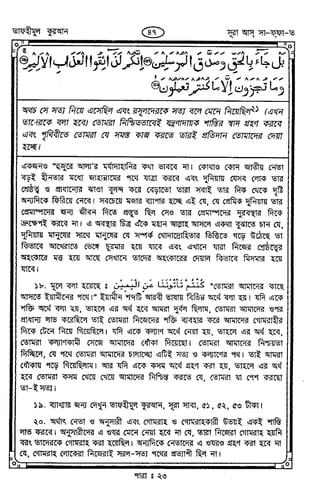 তাফহীমুল কুরআন ৪৭ সূরা আস্ সা-ফ্ফা-ত
بَلْ جَاءَ بِالْحَقِّ وَصَدَّقَ الْمُرْسَلِينَ إِنَّكُمْ لَذَائِقُوا الْعَذَابِ الْأَلِيمِ
وَمَا تُجْزَوْنَ إِلَّا مَا كُنْتُمْ تَعْمَلُونَ
অথচ সে সত্য নিয়ে এসেছিল এবং রসূলদেরকে সত্য বলে মেনে নিয়েছিল। (এখন
তাদেরকে বলা হবে) তোমরা নিশ্চিতভাবেই যন্ত্রণাদায়ক শাস্তির স্বাদ গ্রহণ করবে
এবং পৃথিবীতে তোমরা যে সমস্ত কাজ করতে তারই প্রতিদান তোমাদের দেয়া
হচ্ছে।
একজনও "হুজুরে আলা"র মর্যাদাহানির কথা ভাবতে না। কোথাও কোন জাতীয় নেতা
বড়ই হীনতার মধ্যে জাহান্নামের পথে যাত্রা করবে এবং দুনিয়ায় যেসব লোক তার
শ্রেষ্ঠত্ব ও প্রাধান্যের ঝাণ্ডা বুলন্দ করে বেড়াতো তারা সবাই তার দিক থেকে দৃষ্টি
অন্যদিকে ফিরিয়ে নেবে। সবচেয়ে মজার ব্যাপার হচ্ছে এই যে, যে প্রেমিক দুনিয়ায় তার
প্রেমাস্পদের জন্য জীবন দিতে প্রস্তুত ছিল সেও তার প্রেমাস্পদের দুরবস্থার দিকে
ভ্রুক্ষেপই করবে না। এ অবস্থার চিত্র এঁকে মহান আল্লাহ আসলে একথা বুঝাতে চান যে,
দুনিয়ায় মানুষের সাথে মানুষের যে সম্পর্ক খোদাদ্রোহিতার ভিত্তিতে গড়ে উঠেছে তা
কিভাবে আখেরাতে ভেঙ্গে চুরমার হয়ে যাবে এবং এখানে যারা নিজের শ্রেষ্ঠত্বের
অহংকারে মত্ত হয়ে আছে সেখানে তাদের অহংকারের দেয়াল কিভাবে মিসমার হয়ে
যাবে।
১৮. মূলে বলা হয়েছে : كُنْتُمْ تَأْتُونَنَا عَنِ الْيَمِينِ "তোমরা আমাদের কাছে
আসতে ইয়ামীনের পথে।" ইয়ামীন শব্দটি আরবী ভাষায় বিভিন্ন অর্থে বলা হয়। যদি একে
শক্তি অর্থে বলা হয়, তাহলে এর অর্থ হবে আমরা দুর্বল ছিলাম, তোমরা আমাদের ওপর
প্রাধান্য লাভ করেছিলে তাই তোমরা নিজেদের শক্তি ব্যবহার করে আমাদের গোমরাহীর
দিকে টেনে নিয়ে গিয়েছিলে। যদি একে কল্যাণ অর্থে নেয়া হয়, তাহলে এর অর্থ হবে,
তোমরা কল্যাণকামী সেজে আমাদের ধোঁকা দিয়েছো। তোমরা আমাদের নিশ্চয়তা
দিচ্ছিলে, যে পথে তোমরা আমাদের চালাচ্ছো এটিই সত্য ও কল্যাণের পথ। তাই আমরা
ধোঁকায় পড়ে গিয়েছিলাম। আর যদি একে কসম অর্থে গ্রহণ করা হয়, তাহলে এর অর্থ
হবে তোমরা কসম খেয়ে খেয়ে আমাদের নিশ্চিন্ত করতে যে, তোমরা যা পেশ করছো
তা-ই সত্য।
১৯. ব্যাখ্যার জন্য দেখুন তাফহীমুল কুরআন, সূরা সাবা, ৫১, ৫২, ৫৩ টীকা।
২০. অর্থাৎ নেতা ও অনুসারী এবং গোমরাহ ও গোমরাহকারী উভয়ই একই শাস্তি
লাভ করবে। অনুসারীদের এ ওযর মেনে নেয়া হবে না যে, তারা নিজেরা গোমরাহ হয়নি
বরং তাদেরকে গোমরাহ করা হয়েছিল। অন্যদিকে নেতাদের এ ওযরও গ্রহণ করা হবে না
যে, গোমরাহ লোকেরা নিজেরাই সরল-সত্য পথের প্রত্যাশী ছিল না।
পারা : ২৩